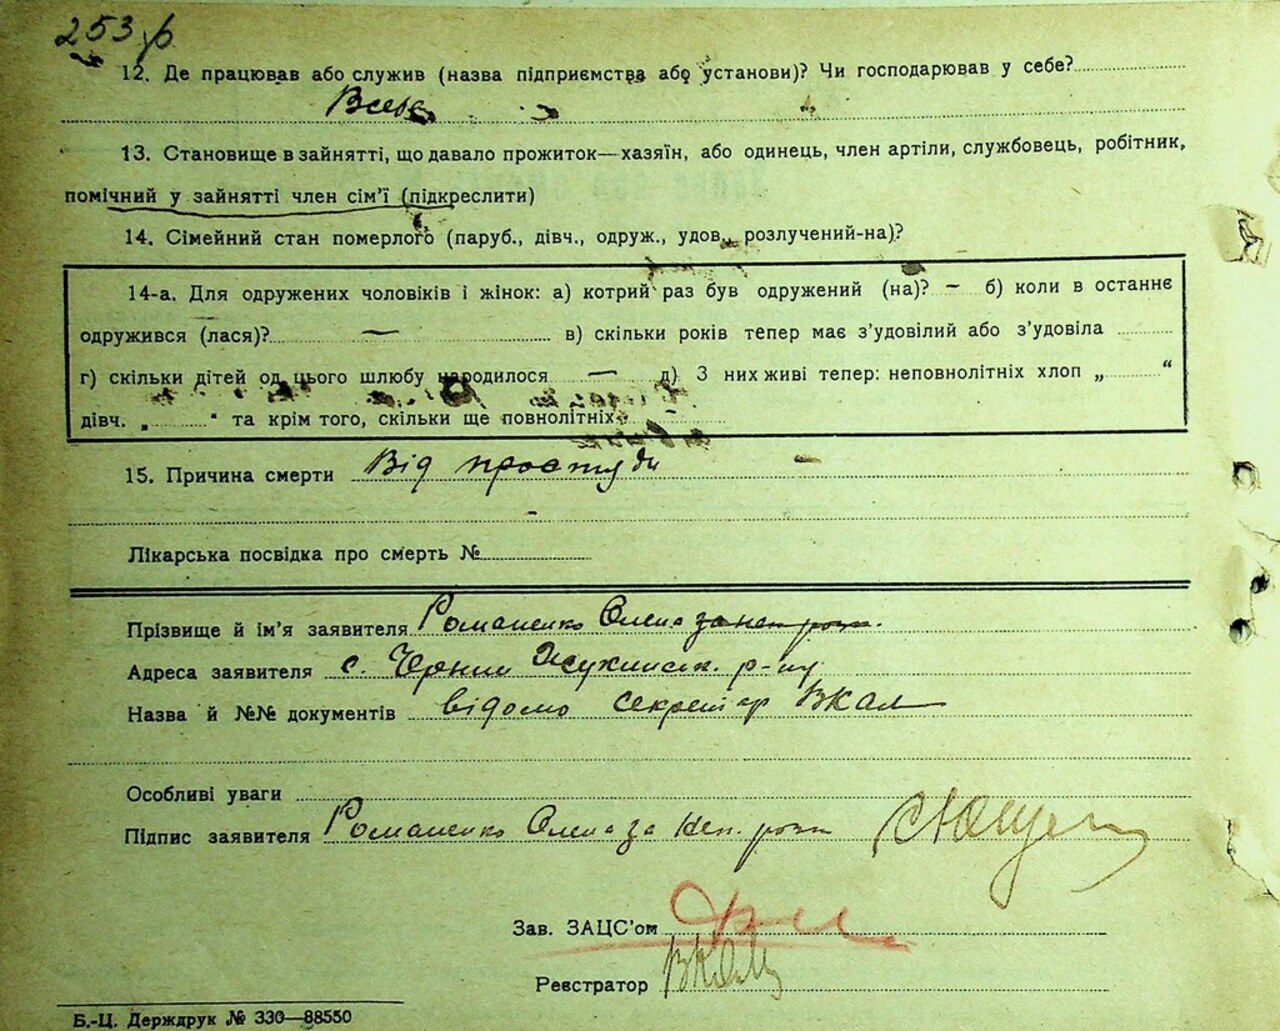 253
12. Де працював або служив (назва підприємства або установи)? Чи господарював у себе?
В себе
13. Становище в зайнятті, що давало прожиток—хазяїн, або одинець, член артіли, службовець, робітник,
помічний у зайнятті член сім'ї (підкреслити)
14. Сімейний стан померлого (паруб., дівч., одруж., удов., розлучений-на)?
14-а. Для одружених чоловіків і жінок: а) котрий раз був одружений (на)? — б) коли в останнє
одружився (лася)? — в) скільки років тепер має з'удовілий або з'удовіла
г) скільки дітей од цього шлюбу народилося — д) З них живі тепер: неповнолітніх хлоп „ “
дівч. „ “ та крім того, скільки ще повнолітніх
15. Причина смерти Від простуди —
Лікарська посвідка про смерть №
Прізвище й ім'я заявителя Романенко Олена
Адреса заявителя с. р-ну
Назва й №№ документів відомо секретар
Особливі уваги
Підпис заявителя Романенко Олена за неп. розп
Зав. ЗАЦС'ом
Реєстратор
Б.-Ц. Держдрук № 330—88550